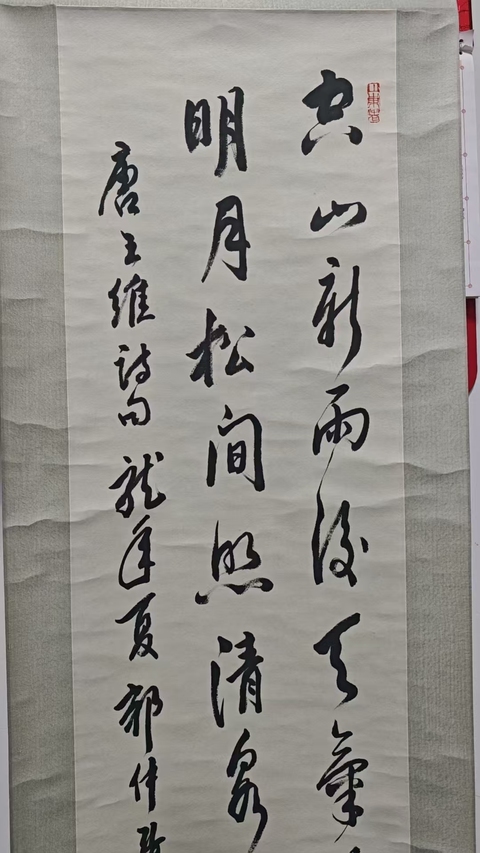 空山新雨後天氣
明月松间照清泉
唐王維詩句 龍年夏 郭仲